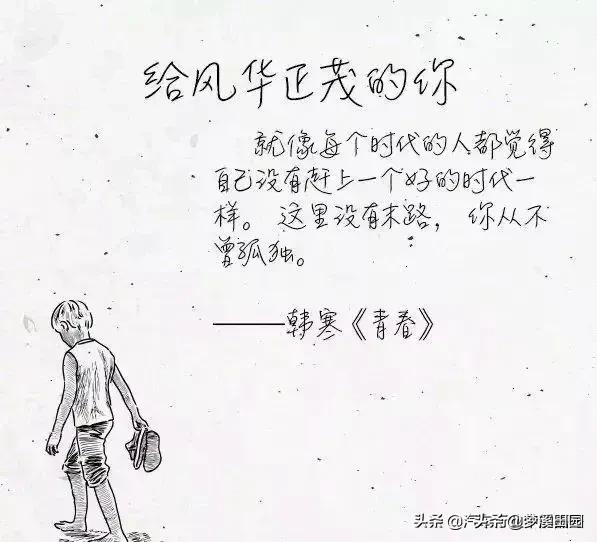 给风华正茂的你
就像每个时代的人都觉得
自己没有赶上一个好的时代一
样。这里没有末路，你从不
曾孤独。
——韩寒《青春》
头条 @